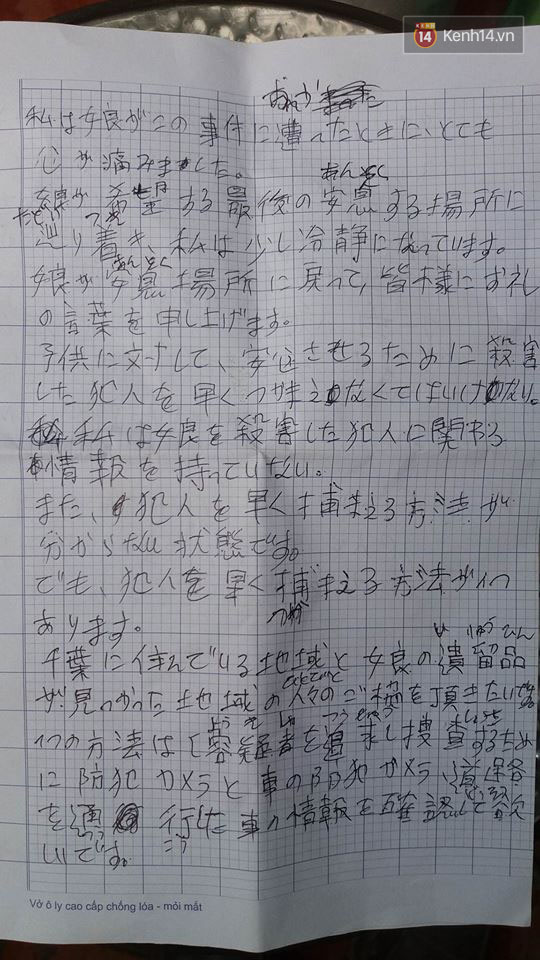 KENH 14 Kenh14.vn
私は娘がこの事件に遭ったときに、とても
心が痛みました。
あんそく
娘が希望する最後の安息する場所に
たどり着き、私は少し冷静になっています。
あんそく
娘が安息場所に戻って、皆様にお礼
の言葉を申し上げます。
子供に対して、安心させるために殺害
した犯人を早くつかまえなくてはいけない。
私は娘を殺害した犯人に関わる
情報を持っていない。
また、犯人を早く捕まえる方法が
分からない状態です。
でも、犯人を早く捕まえる方法が1つ
つか
あります。
い りゅうひん
千葉に住んでいる地域と娘の遺留品
が見つかった地域の人々のご
を頂きたいです。
よう ぎ しゃ
1つの方法は容疑者を追
し捜査するため
に防犯カメラと車の防犯カメラ、道路
どうろ
を通行した車の情報を確認して欲
つう こう
しいです。
Vở ô ly cao cấp chống lóa - mỏi mắt